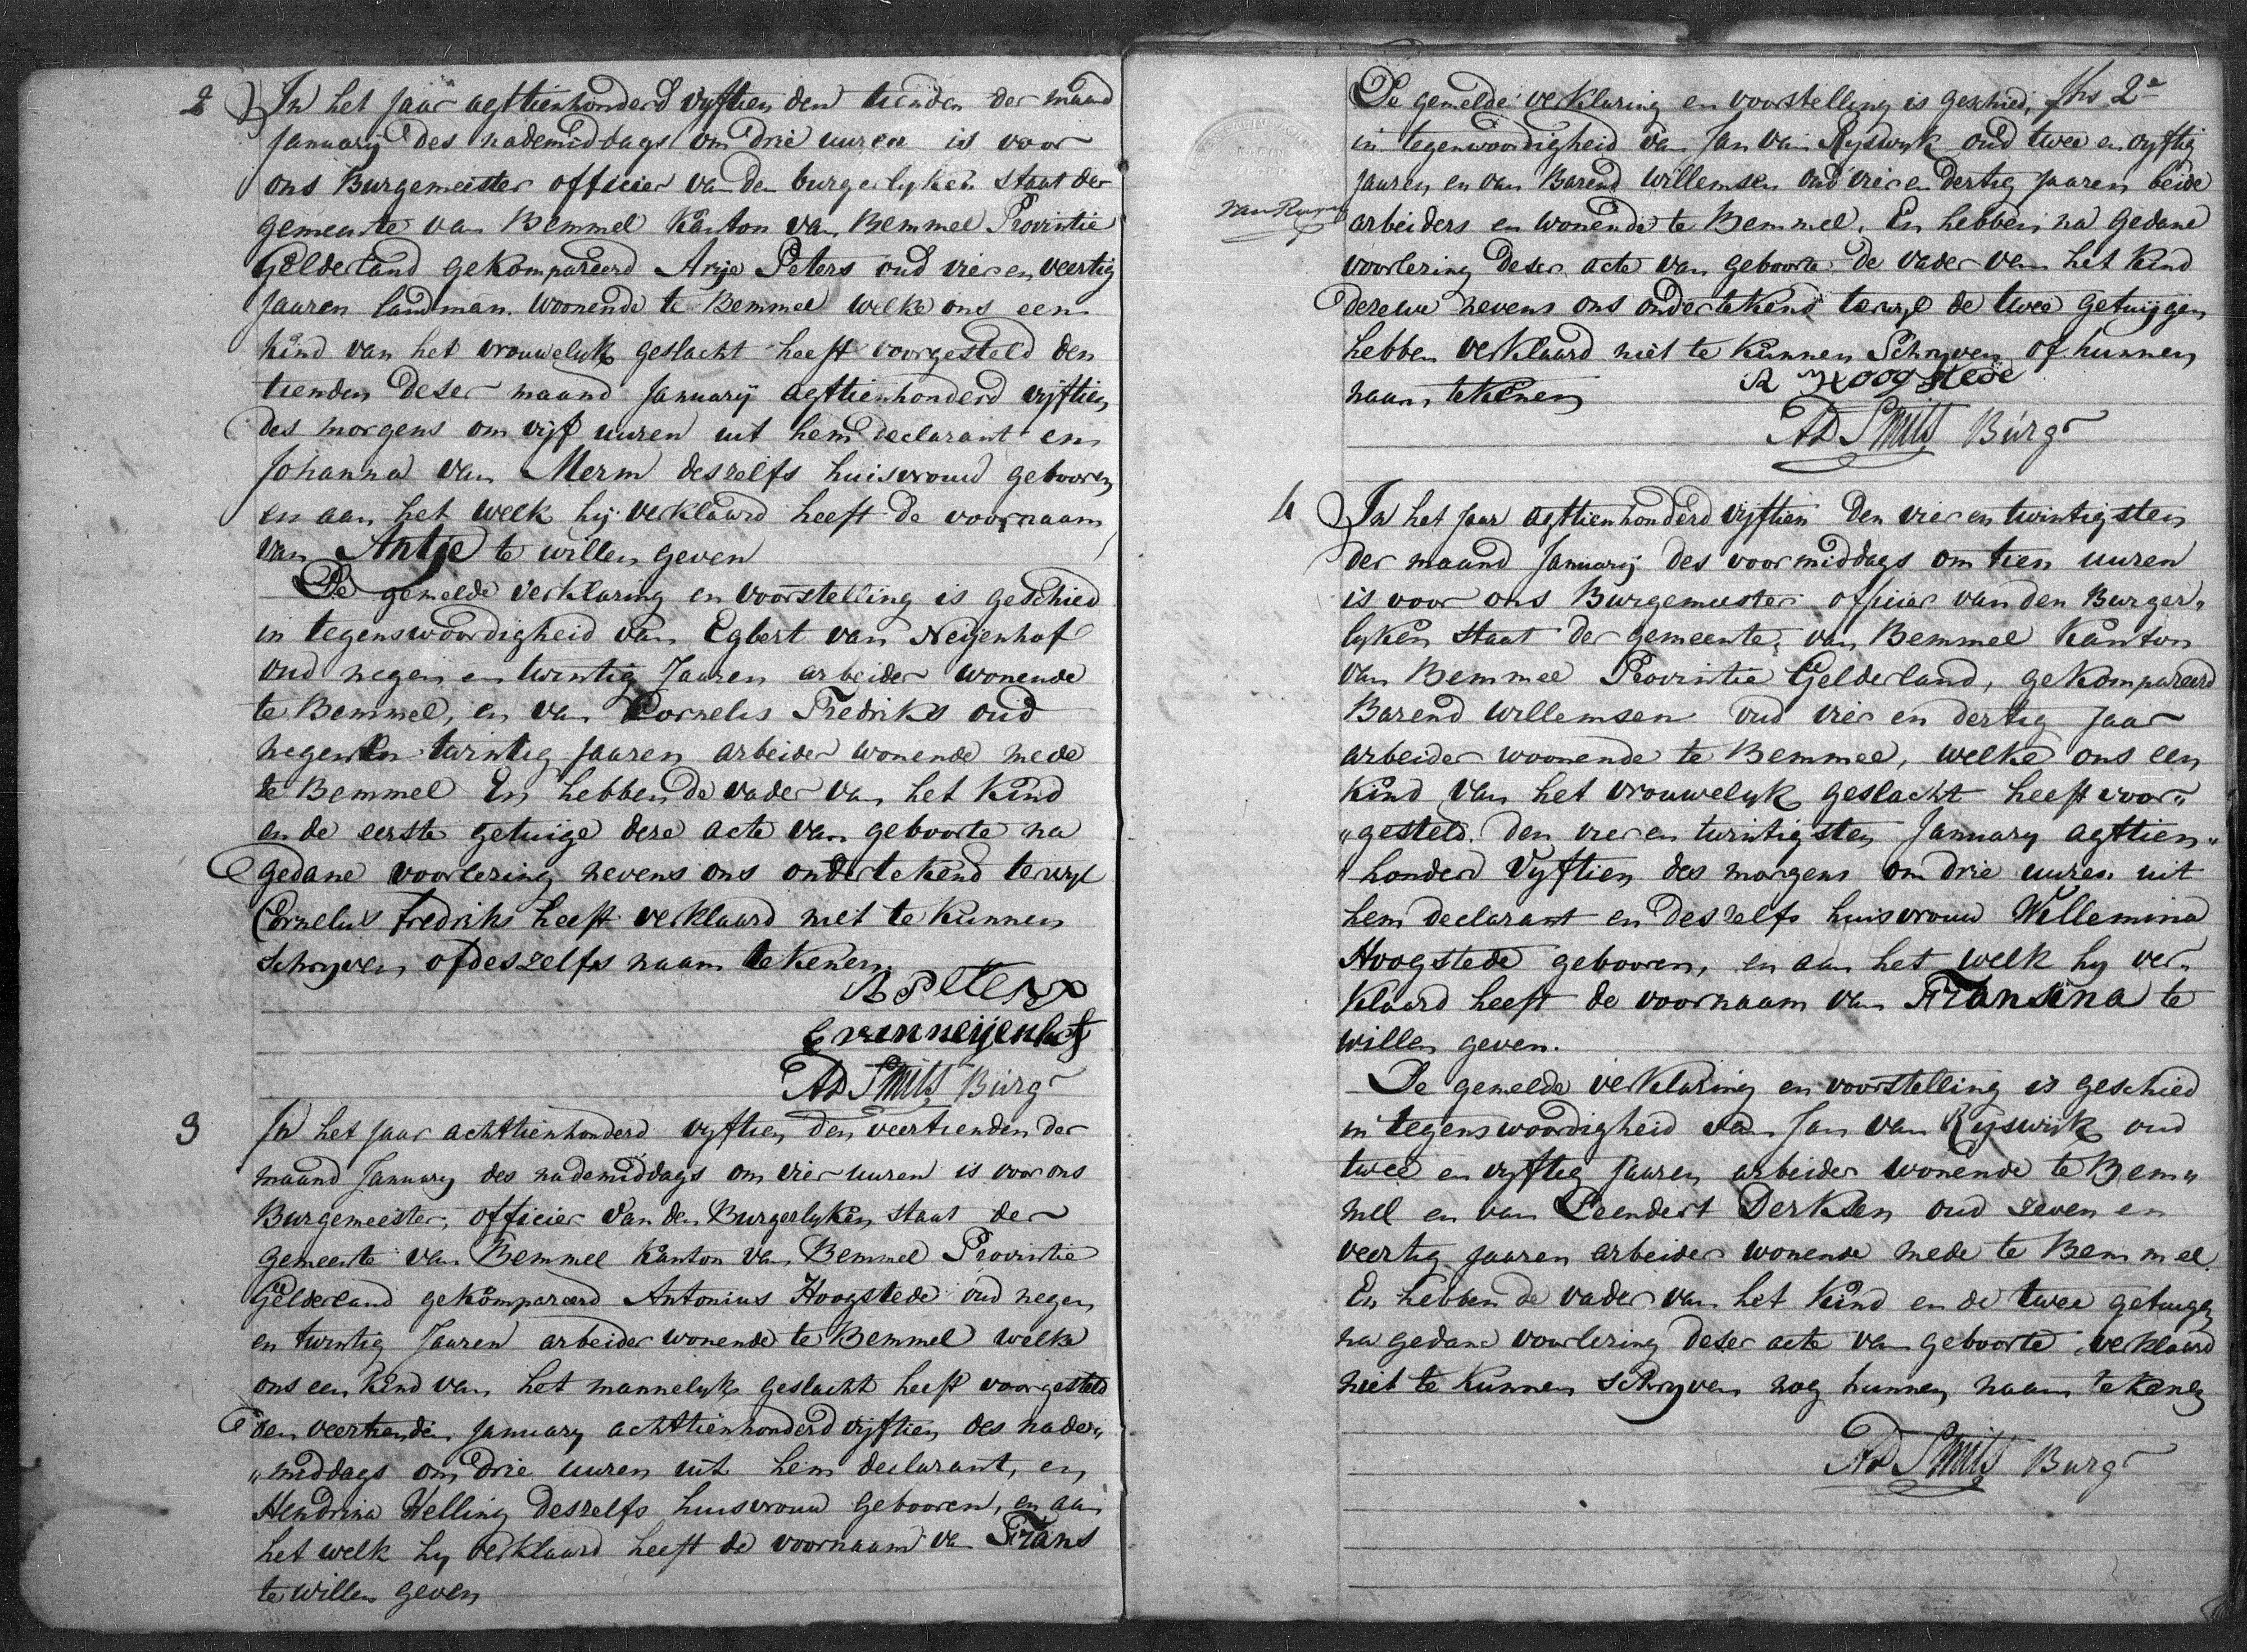 2 In het Jaar agttienhonderd vyftien den tienden der maand
January des nademiddags om drie uuren is voor
ons Burgemeester officier van den burgerlyken staat der
gemeente van Bemmel Kanton van Bemmel Provintie
Gelderland gekompareerd Arije Peters oud vier en veertig
Jaaren landman woonende te Bemmel welke ons een
kind van het vrouwelyk geslacht heeft voorgesteld den
tienden deser maand January agttienhonderd vyftien
des morgens om vijf uuren uit hem declarant en
Johanna van Merm deszelfs huisvrouw gebooren
en aan het welk hij verklaard heeft de voornaam
van Antje te willen geven
De gemelde verklaring en voorstelling is geschied
in tegenswoordigheid van Egbert van Neijenhof
oud negen en twintig Jaaren arbeider wonende
te Bemmel, en van Cornelis Fredriks oud
negen en twintig Jaaren arbeider wonende mede
te Bemmel En hebben de vader van het Kind
en de eerste getuige deze acte van geboorte na
gedane voorlezing nevens ons ondertekend terwyl
Cornelus Fredriks heeft verklaard niet te kunnen
schryven of deszelfs naam tekenen.
A Peters
E van neijenhof
AD Smits Burgr
3 In het Jaar achttienhonderd vyftien den veertienden der
maand January des nademiddags om vier uuren is voor ons
Burgemeester, officier van den Burgerlyken staat der
gemeente van Bemmel Kanton van Bemmel Provintie
Gelderland gekompareerd Antonius Hoogstede oud negen
en twintig Jaaren arbeider wonende te Bemmel welke
ons een kind van het mannelyk geslacht heeft voorgesteld
den veertienden January achttienhonderd vijftien des nade„
„middags om drie uuren uit hem declarant, en
Hendrina Welling deszelfs huisvrouw gebooren, en aan
het welk hy verklaard heeft de voornaam van Frans
te willen geven
De gemelde verklaring en voorstelling is geschied, 2e
in tegenwoordigheid van Jan van Ryswyk oud twee en vyftig
Jaaren en van Barend Willemsen oud vier en dertig Jaaren beide
arbeiders en wonende te Bemmel. En hebben na gedane
voorlezing deser acte van geboorte de vader van het Kind
dezelve nevens ons ondertekend terwyl de twee getuijgen
hebben verklaard niet te kunnen Schryven of hunnen
naam tekenen
A Hoogstede
AD Smits Burgr
4 In het Jaar agttienhonderd vyftien den vier en twintigsten
der maand January des voormiddags om tien uuren
is voor ons Burgemeester officier van den Burger„
lyken staat der gemeente van Bemmel Kanton
van Bemmel Provintie Gelderland, gekompareerd
Barend Willemsen oud vier en dertig Jaar
arbeider woonende te Bemmel, welke ons een
Kind van het vrouwelyk geslacht heeft voor„
„gesteld. den vier en twintigsten January agttien„
„honderd vyftien des morgens om drie uuren uit
hem declarant en deszelfs huisvrouw Willemina
Hoogstede gebooren, en aan het welk hy ver„
klaard heeft de voornaam van Fransina te
willen geven.
De gemelde verklaring en voorstelling is geschied
in tegenswoordigheid van Jan van Ryswijk oud
twee en vyftig Jaaren arbeider wonende te Bem„
mel en van Leendert Derksen oud zeven en
veertig Jaaren arbeider wonende mede te Bemmel.
En hebben de vader van het Kind en de twee getuigen
na gedane voorlezing deser acte van geboorte verklaard
niet te kunnen schryven nog hunnen naam tekenen
AD Smits Burgr